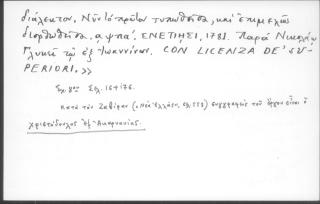 διάλεκτον. Νῦν τὸ πρῶτον τυπωθεῖσα, καὶ ἐπιμελῶς
διορθωθεῖσα. αψπα΄. ΕΝΕΤΙΗΣΙ, 1781. Παρὰ Νικολάῳ
Γλυκεῖ τῷ ἐξ Ἰωαννίνων. CON LICENZA DE' SU-
PERIORI.>>
Σχ. 8ον Σελ. 16+176.
Κατὰ τὸν Ζαβίραν («Νέα Ἑλλάς», σελ. 555) συγγραφεὺς τοῦ ἔργου εἶναι ὁ
Χριστόδουλος ἐξ Ἀκαρνανίας.